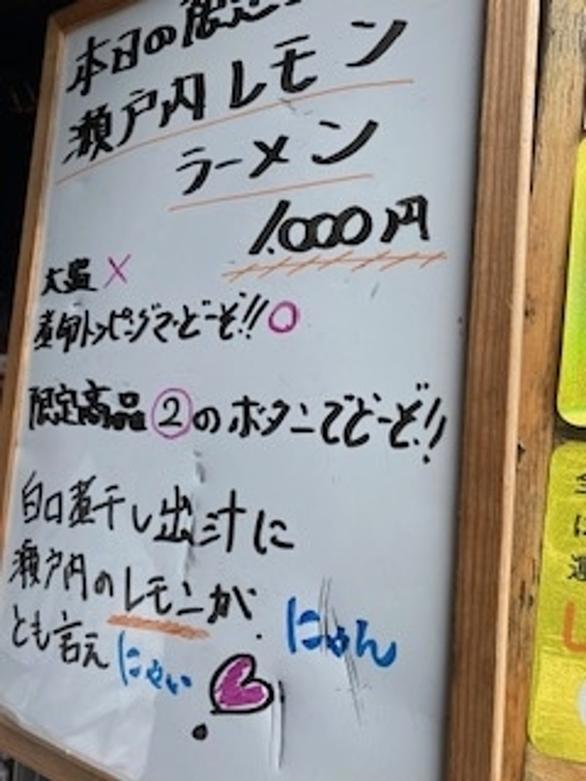 本日の限定
瀬戸内レモン
ラーメン
1.000円
大盛 ×
煮卵トッピングまでどーぞ!! ○
限定商品②のボタンでどーぞ!!
白口煮干し出汁に
瀬戸内のレモンが
とも言えにゃい
にゃん